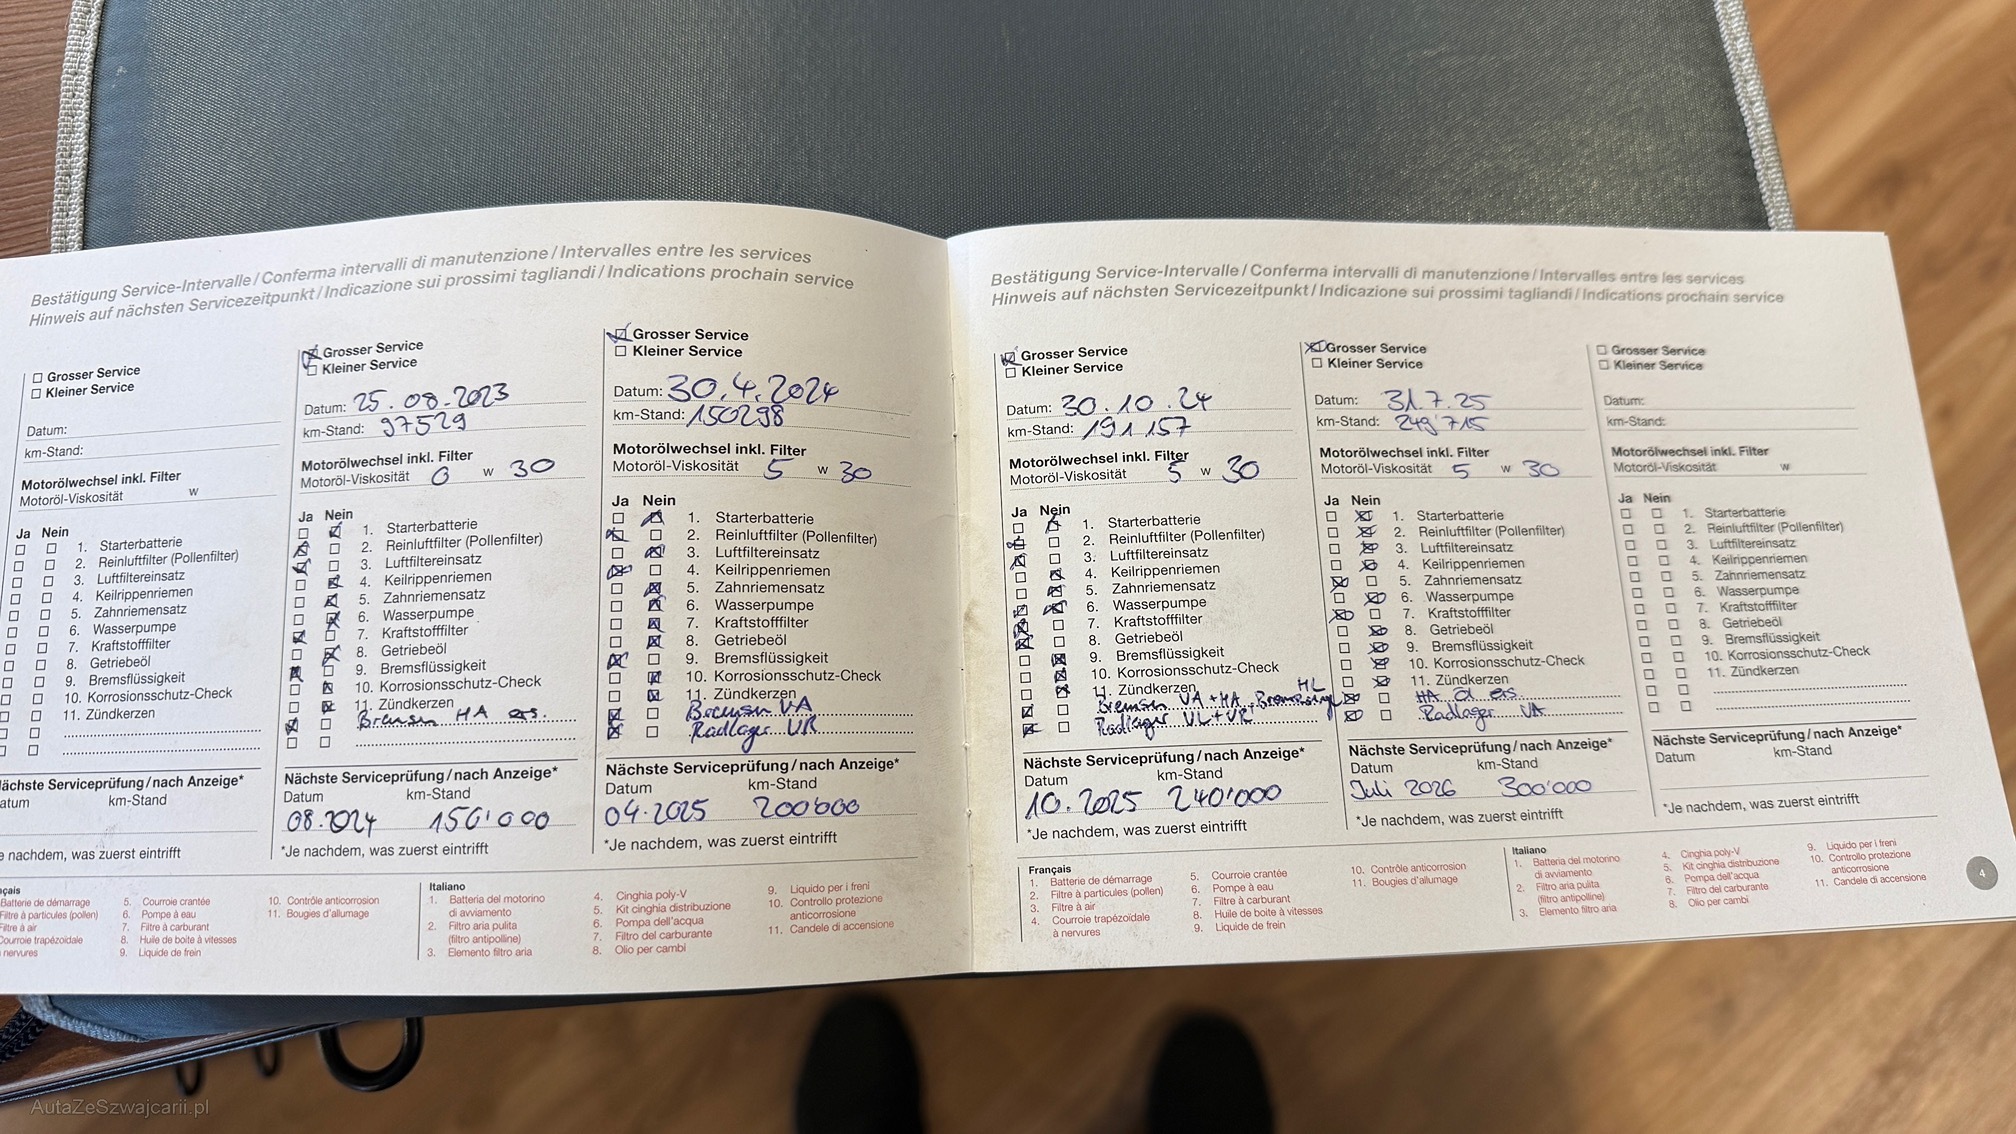 Bestätigung Service-Intervalle / Conferma intervalli di manutenzione / Intervalles entre les services
Hinweis auf nächsten Servicezeitpunkt / Indicazione sui prossimi tagliandi / Indications prochain service
Grosser Service
Kleiner Service
Datum:
km-Stand:
Motorölwechsel inkl. Filter
Motoröl-Viskosität w
Ja Nein
1. Starterbatterie
2. Reinluftfilter (Pollenfilter)
3. Luftfiltereinsatz
4. Keilrippenriemen
5. Zahnriemensatz
6. Wasserpumpe
7. Kraftstofffilter
8. Getriebeöl
9. Bremsflüssigkeit
10. Korrosionsschutz-Check
11. Zündkerzen
ächste Serviceprüfung / nach Anzeige*
atum km-Stand
e nachdem, was zuerst eintrifft
Grosser Service
Kleiner Service
Datum: 25.08.2023
km-Stand: 97529
Motorölwechsel inkl. Filter
Motoröl-Viskosität 0 w 30
Ja Nein
1. Starterbatterie
2. Reinluftfilter (Pollenfilter)
3. Luftfiltereinsatz
4. Keilrippenriemen
5. Zahnriemensatz
6. Wasserpumpe
7. Kraftstofffilter
8. Getriebeöl
9. Bremsflüssigkeit
10. Korrosionsschutz-Check
11. Zündkerzen
Bremsen HA ers.
Nächste Serviceprüfung / nach Anzeige*
Datum km-Stand
08.2024 150'000
*Je nachdem, was zuerst eintrifft
Grosser Service
Kleiner Service
Datum: 30.4.2024
km-Stand: 150298
Motorölwechsel inkl. Filter
Motoröl-Viskosität 5 w 30
Ja Nein
1. Starterbatterie
2. Reinluftfilter (Pollenfilter)
3. Luftfiltereinsatz
4. Keilrippenriemen
5. Zahnriemensatz
6. Wasserpumpe
7. Kraftstofffilter
8. Getriebeöl
9. Bremsflüssigkeit
10. Korrosionsschutz-Check
11. Zündkerzen
Bremsen VA
Radlager VR
Nächste Serviceprüfung / nach Anzeige*
Datum km-Stand
04.2025 200'000
*Je nachdem, was zuerst eintrifft
çais
Batterie de démarrage
Filtre à particules (pollen)
Filtre à air
Courroie trapézoïdale
nervures
5. Courroie crantée
6. Pompe à eau
7. Filtre à carburant
8. Huile de boîte à vitesses
9. Liquide de frein
10. Contrôle anticorrosion
11. Bougies d'allumage
Italiano
1. Batteria del motorino
di avviamento
2. Filtro aria pulita
(filtro antipolline)
3. Elemento filtro aria
4. Cinghia poly-V
5. Kit cinghia distribuzione
6. Pompa dell'acqua
7. Filtro del carburante
8. Olio per cambi
9. Liquido per i freni
10. Controllo protezione
anticorrosione
11. Candele di accensione
Bestätigung Service-Intervalle / Conferma intervalli di manutenzione / Intervalles entre les services
Hinweis auf nächsten Servicezeitpunkt / Indicazione sui prossimi tagliandi / Indications prochain service
Grosser Service
Kleiner Service
Datum: 30.10.24
km-Stand: 191157
Motorölwechsel inkl. Filter
Motoröl-Viskosität 5 w 30
Ja Nein
1. Starterbatterie
2. Reinluftfilter (Pollenfilter)
3. Luftfiltereinsatz
4. Keilrippenriemen
5. Zahnriemensatz
6. Wasserpumpe
7. Kraftstofffilter
8. Getriebeöl
9. Bremsflüssigkeit
10. Korrosionsschutz-Check
11. Zündkerzen
Bremsen VA + HA, HL
Radlager VL + VR
Nächste Serviceprüfung / nach Anzeige*
Datum km-Stand
10.2025 240'000
*Je nachdem, was zuerst eintrifft
Grosser Service
Kleiner Service
Datum: 31.7.25
km-Stand: 249'715
Motorölwechsel inkl. Filter
Motoröl-Viskosität 5 w 30
Ja Nein
1. Starterbatterie
2. Reinluftfilter (Pollenfilter)
3. Luftfiltereinsatz
4. Keilrippenriemen
5. Zahnriemensatz
6. Wasserpumpe
7. Kraftstofffilter
8. Getriebeöl
9. Bremsflüssigkeit
10. Korrosionsschutz-Check
11. Zündkerzen
HA ers
Radlager VA
Nächste Serviceprüfung / nach Anzeige*
Datum km-Stand
Juli 2026 300'000
*Je nachdem, was zuerst eintrifft
Grosser Service
Kleiner Service
Datum:
km-Stand:
Motorölwechsel inkl. Filter
Motoröl-Viskosität w
Ja Nein
1. Starterbatterie
2. Reinluftfilter (Pollenfilter)
3. Luftfiltereinsatz
4. Keilrippenriemen
5. Zahnriemensatz
6. Wasserpumpe
7. Kraftstofffilter
8. Getriebeöl
9. Bremsflüssigkeit
10. Korrosionsschutz-Check
11. Zündkerzen
Nächste Serviceprüfung / nach Anzeige*
Datum km-Stand
*Je nachdem, was zuerst eintrifft
Français
1. Batterie de démarrage
2. Filtre à particules (pollen)
3. Filtre à air
4. Courroie trapézoïdale
à nervures
5. Courroie crantée
6. Pompe à eau
7. Filtre à carburant
8. Huile de boîte à vitesses
9. Liquide de frein
10. Contrôle anticorrosion
11. Bougies d'allumage
Italiano
1. Batteria del motorino
di avviamento
2. Filtro aria pulita
(filtro antipolline)
3. Elemento filtro aria
4. Cinghia poly-V
5. Kit cinghia distribuzione
6. Pompa dell'acqua
7. Filtro del carburante
8. Olio per cambi
9. Liquido per i freni
10. Controllo protezione
anticorrosione
11. Candele di accensione
4
AutaZeSzwajcarii.pl